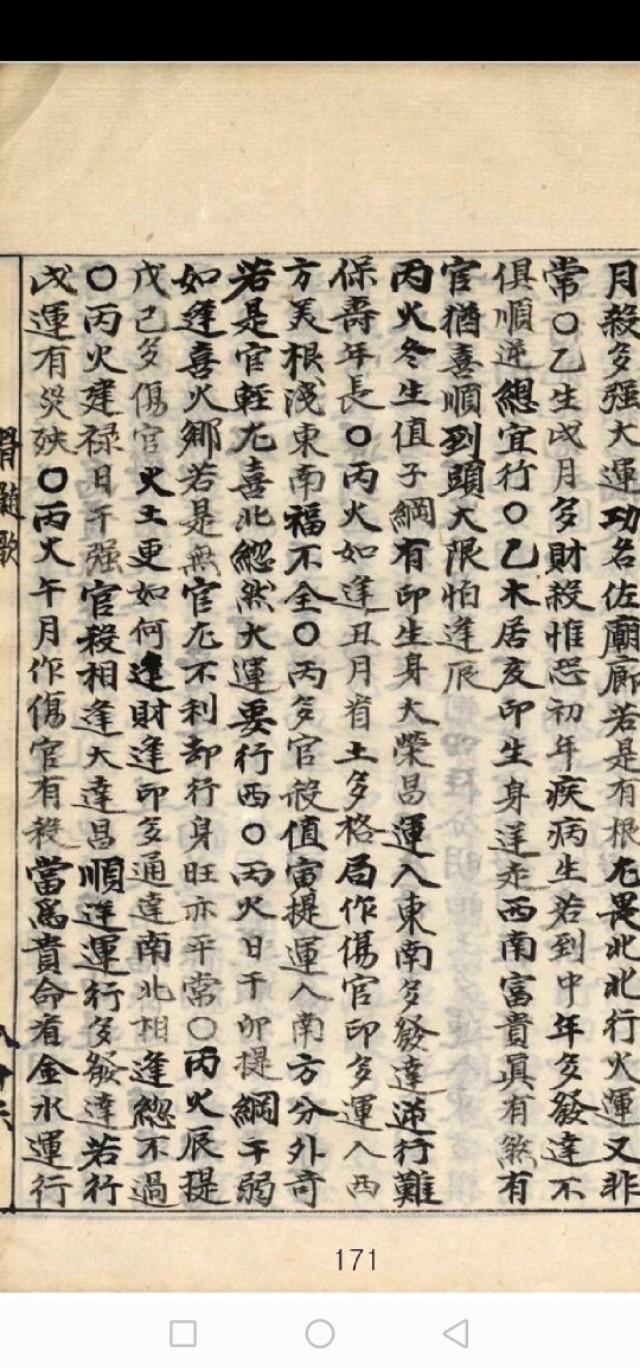 月殺多强大運功名佐廟廊若是有根尤畏北北行火運又非
常〇乙生戌月多財殺惟恐初年疾病生若到中年多發達不
俱順逆總宜行〇乙木居亥印生身運走西南富貴眞有煞有
官猶喜順到頭大限怕逢辰
丙火冬生值子綱有印生身大榮昌運入東南多發達逆行難
保壽年長〇丙火如逢丑月省土多格局作傷官印多運入西
方美根淺東南福不全〇丙多官殺值寅提運入南方分外奇
若是官輕尤喜北緫然大運要行西〇丙火日干卯提綱干弱
如逢喜火鄉若是無官尤不利却行身旺亦平常〇丙火辰提
戊己多傷官火土更如何逢財逢印多通達南北相逢總不過
〇丙火建禄日干强官殺相逢大達昌順逆運行多發達若行
戌運有災殃〇丙火午月作傷官有殺當爲貴命看金水運行
骨髓歌
171